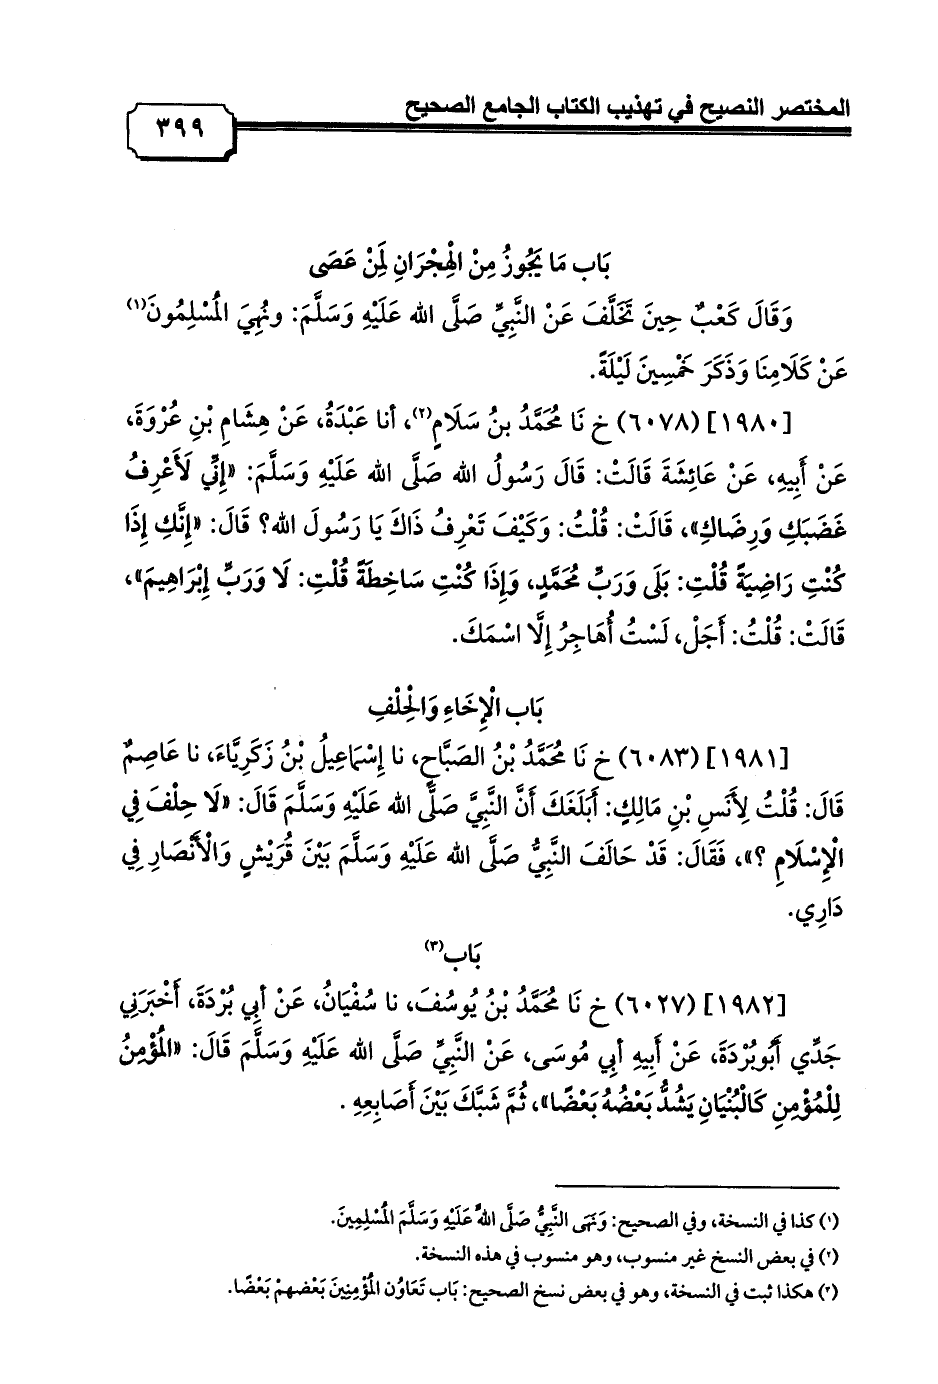 المختصر النصيح في تهذيب الكتاب الجامع الصحيح
٣٩٩
بَاب مَا يَجُوزُ مِنْ الْهِجْرَانِ لِمَنْ عَصَى
وَقَالَ كَعْبٌ حِينَ تَخَلَّفَ عَنْ النَّبِيِّ صَلَّى الله عَلَيْهِ وَسَلَّمَ: ونُهِيَ الْمُسْلِمُونَ(١)
عَنْ كَلَامِنَا وَذَكَرَ خَمْسِينَ لَيْلَةً.
[١٩٨٠] (٦٠٧٨) خ نَا مُحَمَّدُ بنُ سَلَامٍ(٢)، أنا عَبْدَةُ، عَنْ هِشَامِ بْنِ عُرْوَةَ،
عَنْ أَبِيهِ، عَنْ عَائِشَةَ قَالَتْ: قَالَ رَسُولُ الله صَلَّى الله عَلَيْهِ وَسَلَّمَ: «إِنِّي لَأَعْرِفُ
غَضَبَكِ وَرِضَاكِ»، قَالَتْ: قُلْتُ: وَكَيْفَ تَعْرِفُ ذَاكَ يَا رَسُولَ الله؟ قَالَ: «إِنَّكِ إِذَا
كُنْتِ رَاضِيَةً قُلْتِ: بَلَى وَرَبِّ مُحَمَّدٍ، وَإِذَا كُنْتِ سَاخِطَةً قُلْتِ: لَا وَرَبِّ إِبْرَاهِيمَ»،
قَالَتْ: قُلْتُ: أَجَلْ، لَسْتُ أُهَاجِرُ إِلَّا اسْمَكَ.
بَاب الْإِخَاءِ وَالْحِلْفِ
[١٩٨١] (٦٠٨٣) خ نَا مُحَمَّدُ بْنُ الصَبَّاحِ، نا إِسْمَاعِيلُ بْنُ زَكَرِيَّاءَ، نا عَاصِمٌ
قَالَ: قُلْتُ لِأَنَسِ بْنِ مَالِكٍ: أَبَلَغَكَ أَنَّ النَّبِيَّ صَلَّى الله عَلَيْهِ وَسَلَّمَ قَالَ: «لَا حِلْفَ فِي
الْإِسْلَامِ ؟»، فَقَالَ: قَدْ حَالَفَ النَّبِيُّ صَلَّى الله عَلَيْهِ وَسَلَّمَ بَيْنَ قُرَيْشٍ وَالْأَنْصَارِ فِي
دَارِي.
بَاب(٣)
[١٩٨٢] (٦٠٢٧) خ نَا مُحَمَّدُ بْنُ يُوسُفَ، نا سُفْيَانُ، عَنْ أبِي بُرْدَةَ، أَخْبَرَنِي
جَدِّي أَبُوبُرْدَةَ، عَنْ أَبِيهِ أبِي مُوسَى، عَنْ النَّبِيِّ صَلَّى الله عَلَيْهِ وَسَلَّمَ قَالَ: «الْمُؤْمِنُ
لِلْمُؤْمِنِ كَالْبُنْيَانِ يَشُدُّ بَعْضُهُ بَعْضًا»، ثُمَّ شَبَّكَ بَيْنَ أَصَابِعِهِ .
(١) كذا في النسخة، وفي الصحيح: وَنَهَى النَّبِيُّ صَلَّى اللهُ عَلَيْهِ وَسَلَّمَ الْمُسْلِمِينَ.
(٢) في بعض النسخ غير منسوب، وهو منسوب في هذه النسخة.
(٣) هكذا ثبت في النسخة، وهو في بعض نسخ الصحيح: بَاب تَعَاوُن الْمُؤْمِنِينَ بَعْضهمْ بَعْضًا.